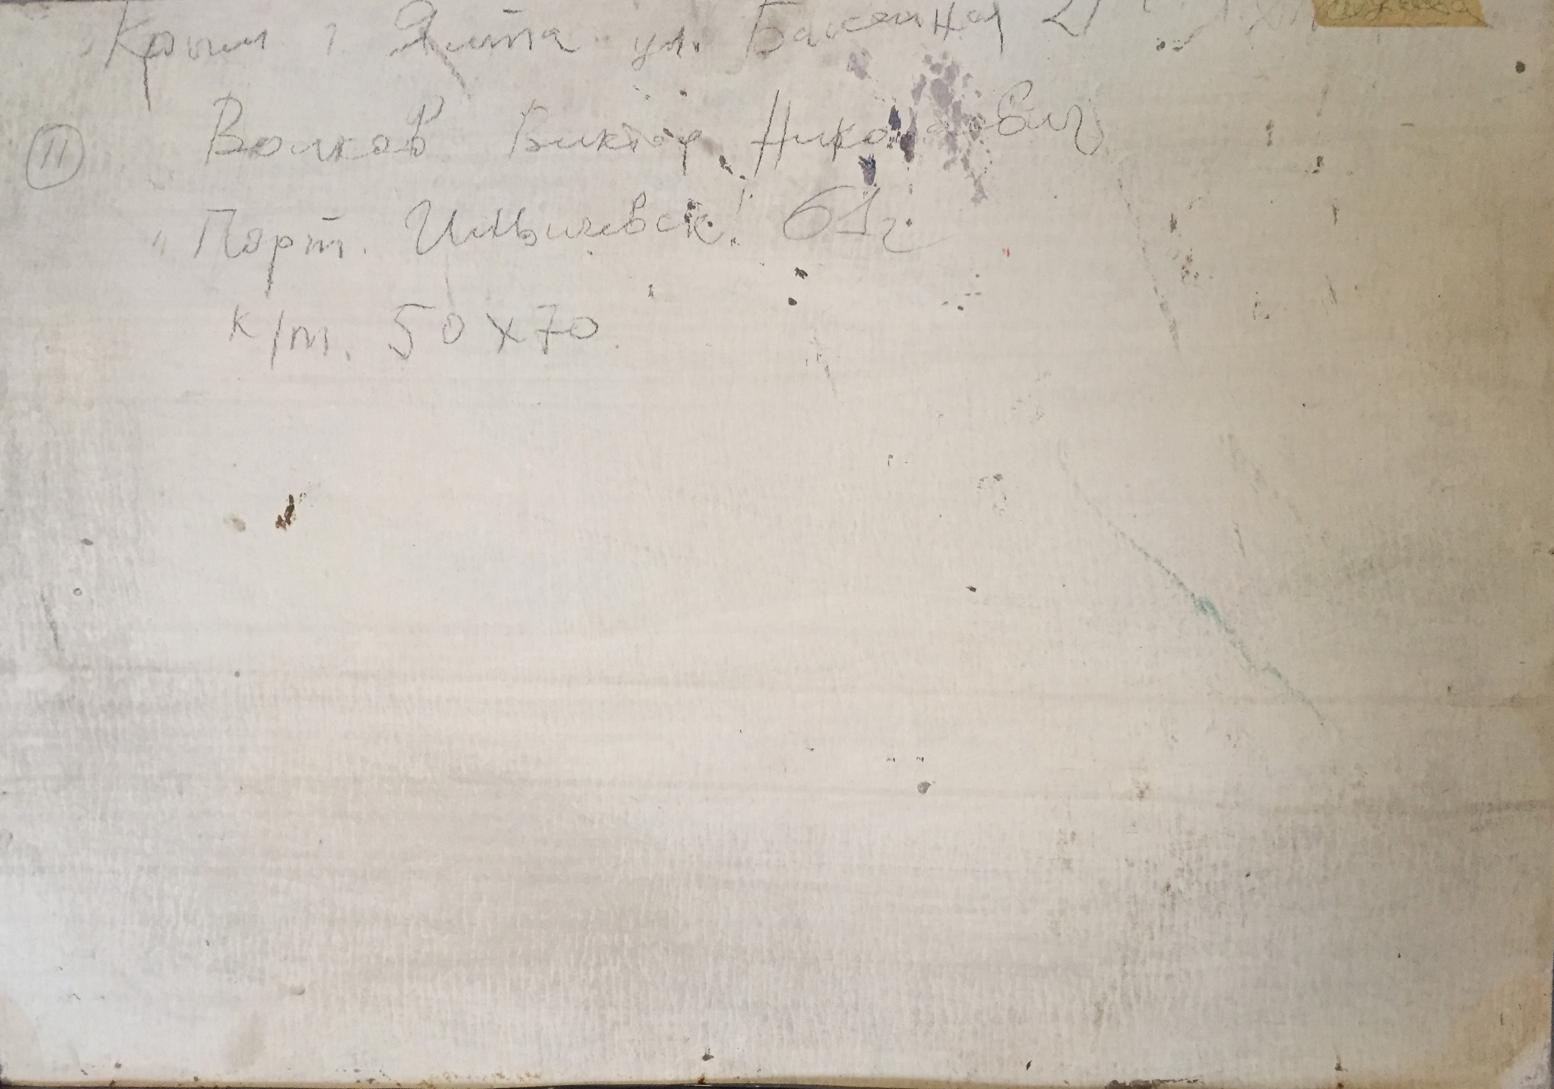 Крым г Ялта ул. Бассейная 21
11 Волков Виктор Николаевич
"Порт. Ильичевск". 61г.
к/т. 50х70.